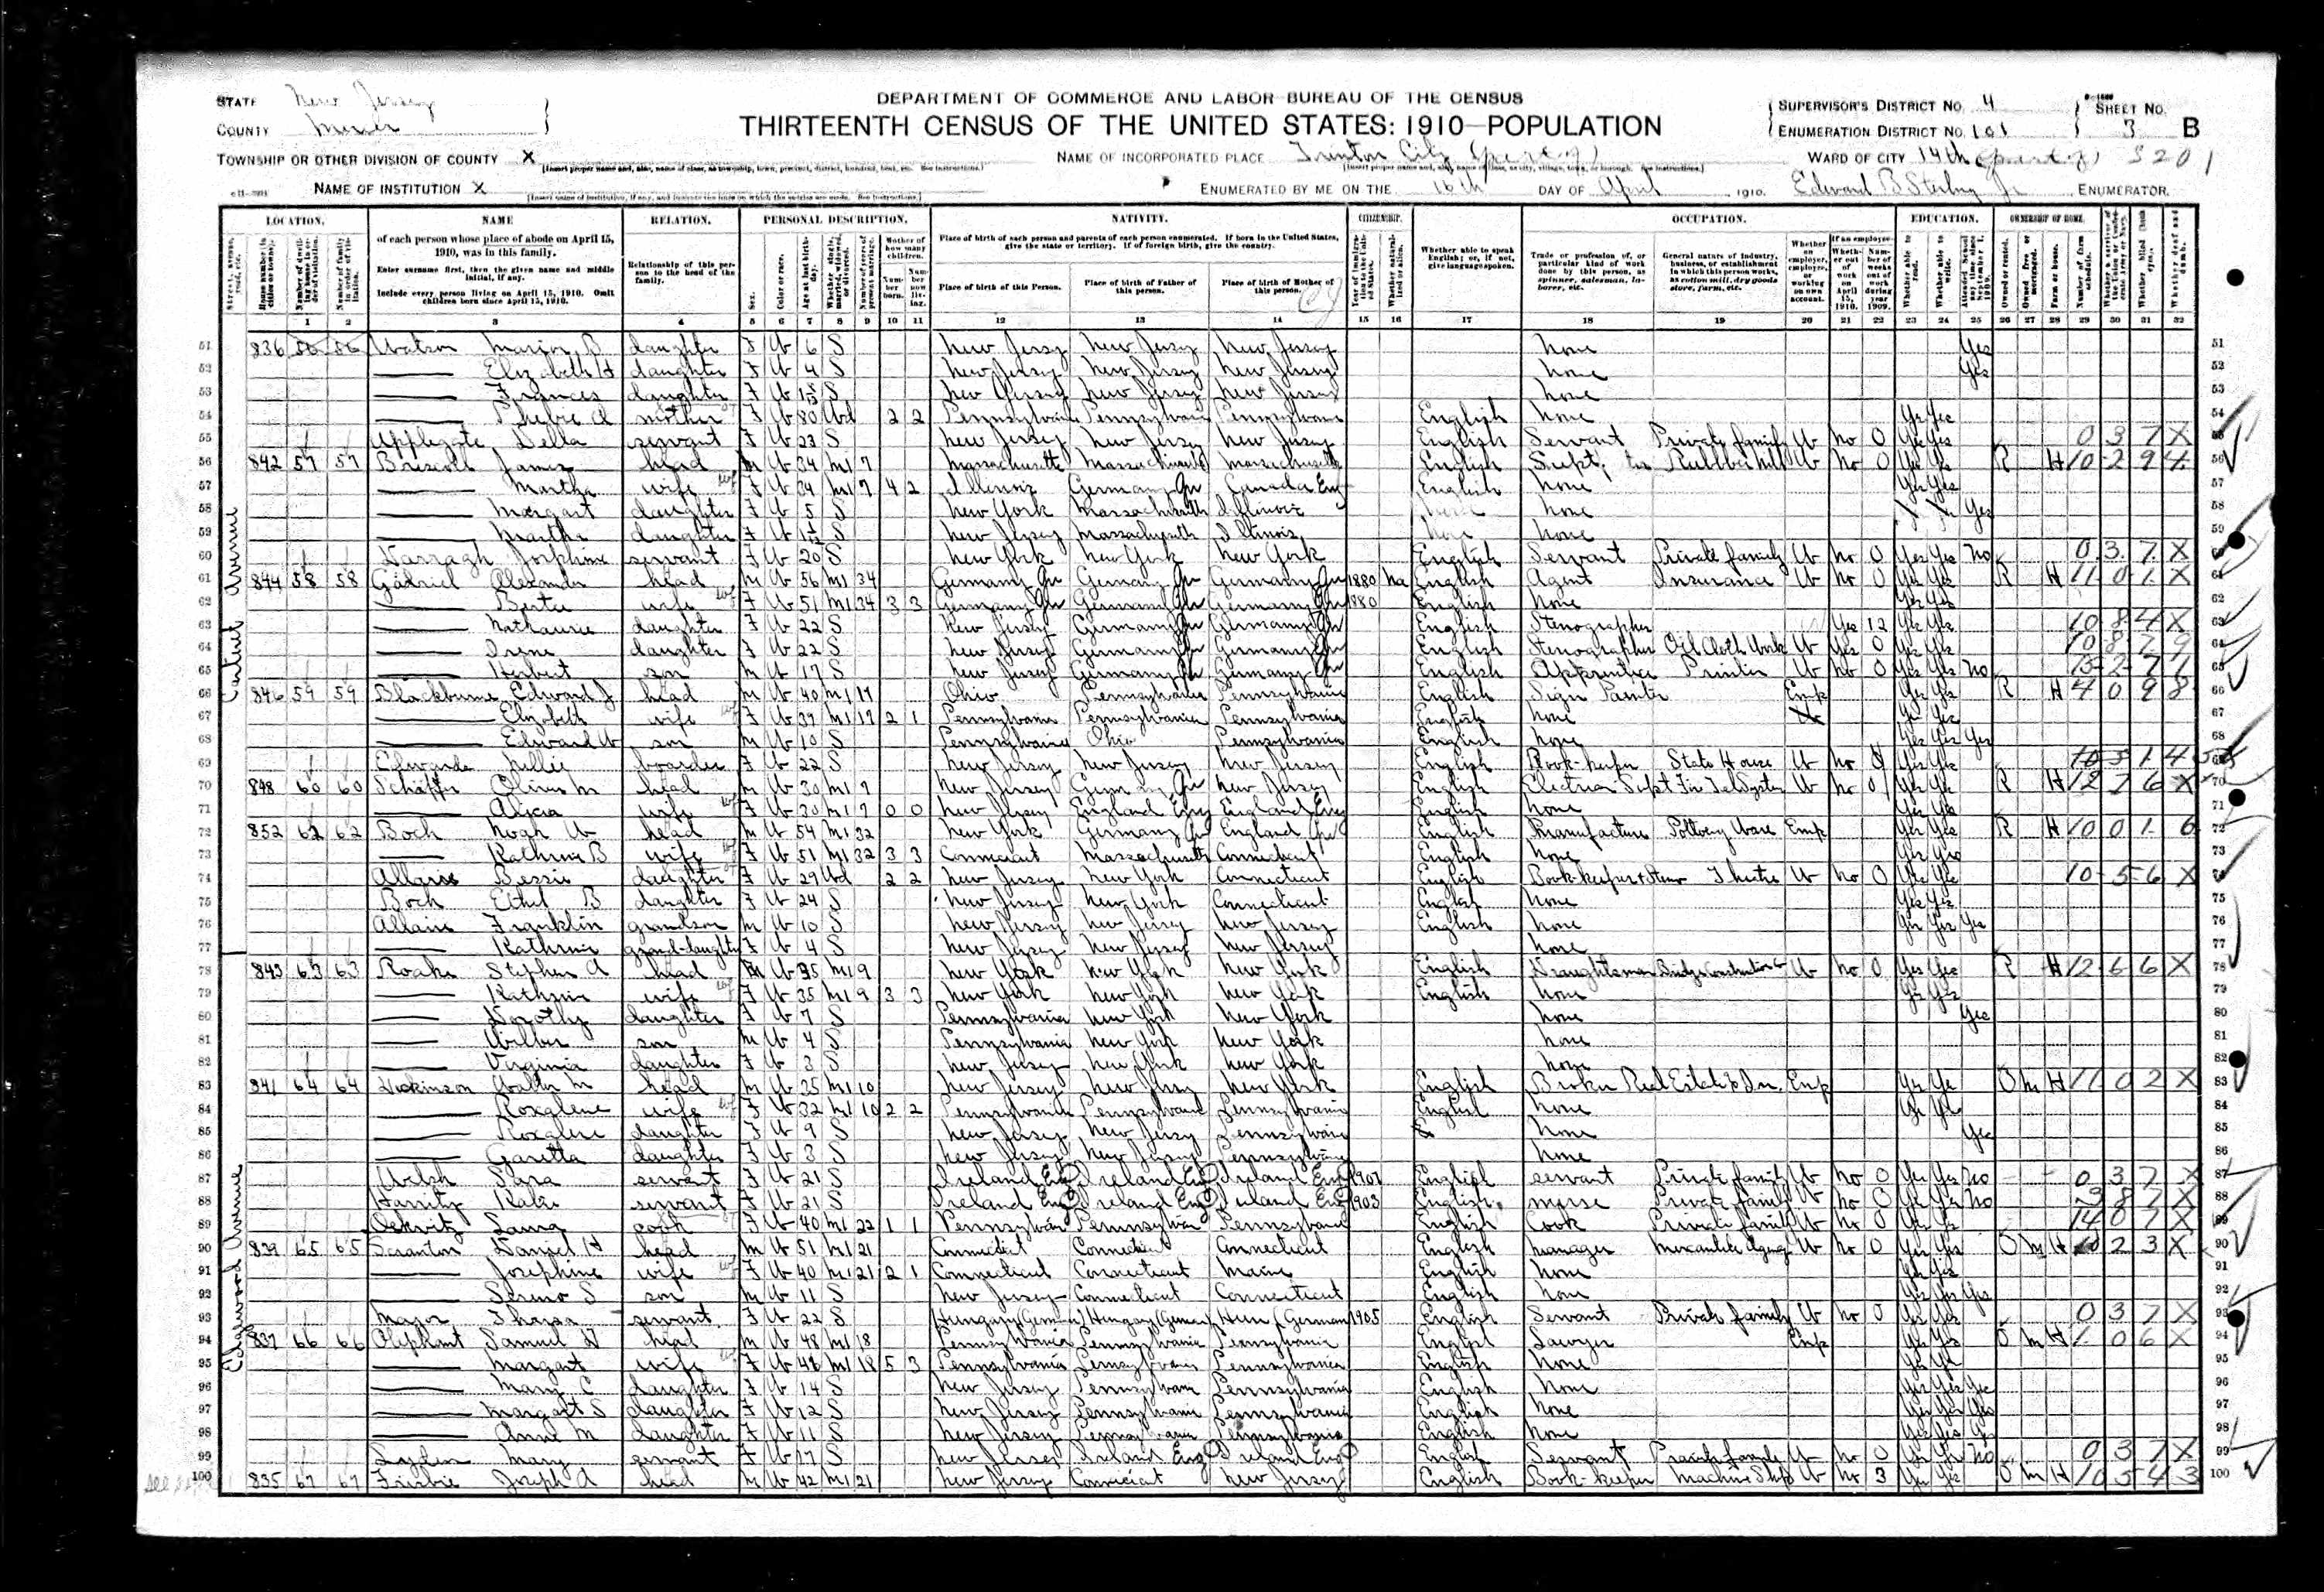 DEPARTMENT OF COMMERCE AND LABOR BUREAU OF THE CENSUS
THIRTEENTH CENSUS OF THE UNITED STATES: 1910—POPULATION
STATE New Jersey
COUNTY Mercer
TOWNSHIP OR OTHER DIVISION OF COUNTY X
NAME OF INSTITUTION X
NAME OF INCORPORATED PLACE Trenton City (part of)
ENUMERATED BY ME ON THE 16th DAY OF April 1910. Edward B Sterling Jr ENUMERATOR.
SUPERVISOR'S DISTRICT NO. 4
ENUMERATION DISTRICT NO. 101
SHEET NO. 3 B
WARD OF CITY 14th (part of) 3201
LOCATION. NAME RELATION. PERSONAL DESCRIPTION. NATIVITY. CITIZENSHIP. OCCUPATION. EDUCATION. OWNERSHIP OF HOME.
of each person whose place of abode on April 15, 1910, was in this family.
Enter surname first, then the given name and middle initial, if any.
Include every person living on April 15, 1910. Omit children born since April 15, 1910.
Relationship of this person to the head of the family.
Place of birth of each person and parents of each person enumerated. If born in the United States, give the state or territory. If of foreign birth, give the country.
Place of birth of this Person. Place of birth of Father of this person. Place of birth of Mother of this person.
Whether able to speak English; or, if not, give language spoken.
Trade or profession of, or particular kind of work done by this person, as spinner, salesman, laborer, etc.
General nature of industry, business, or establishment in which this person works, as cotton mill, dry goods store, farm, etc.
51 836 56 56 Watson Marion B daughter F W 6 S New Jersey New Jersey New Jersey None Yes
52 Elizabeth H daughter F W 4 S New Jersey New Jersey New Jersey None Yes
53 Frances daughter F W S New Jersey New Jersey New Jersey None
54 Phebie A mother F W 80 Wd 2 2 Pennsylvania Pennsylvania Pennsylvania English None Yes Yes
55 Applegate Della servant F W 23 S New Jersey New Jersey New Jersey English Servant Private family W No 0 Yes Yes 0 3 7 X
56 842 57 57 Briscoll James head M W 34 M1 7 Massachusetts Massachusetts Massachusetts English Supt. Rubber Mill W No 0 Yes Yes R H 10 2 9 4
57 Martha wife F W 34 M1 7 4 2 Illinois Germany Ger Canada Eng English None Yes Yes
58 Margart daughter F W 5 S New York Massachusetts Illinois None Yes
59 Martha daughter F W S New Jersey Massachusetts Illinois None
60 Darragh Josphine servant F W 20 S New York New York New York English Servant Private family W No 0 Yes Yes No 0 3 7 X
61 844 58 58 Gabriel Alexander head M W 56 M1 34 Germany Ger Germany Ger Germany Ger 1880 Na English Agent Insurance W No 0 Yes Yes R H 11 0 1 X
62 Berta wife F W 51 M1 34 3 3 Germany Ger Germany Ger Germany Ger 1880 English None Yes Yes
63 daughter F W 22 S New Jersey Germany Ger Germany Ger English Stenographer Yes 12 Yes Yes 10 8 4 X
64 Irene daughter F W 22 S New Jersey Germany Ger Germany Ger English Stenographer Oil Cloth Work W Yes 0 Yes Yes 10 8 7 9
65 Herbert son M W 17 S New Jersey Germany Ger Germany Ger English Apprentice Printer W No 0 Yes Yes No
66 846 59 59 Blackburne Edward J head M W 40 M1 17 Ohio Pennsylvania Pennsylvania English Sign Painter Emp Yes Yes R H 4 0 9 8
67 Elizabeth wife F W 39 M1 17 2 1 Pennsylvania Pennsylvania Pennsylvania English None Yes Yes
68 Edward W son M W 10 S Pennsylvania Ohio Pennsylvania English None Yes Yes Yes
69 Edwards Nellie boarder F W 22 S New Jersey New Jersey New Jersey English Book-keeper State House W No 0 Yes Yes
70 848 60 60 Schaffer Oliver M head M W 30 M1 7 New Jersey Germany Ger New Jersey English Electrian Supt Fire Tel System W No 0 Yes Yes R H 12 7 6 X
71 Alicia wife F W 30 M1 7 0 0 New Jersey England Eng England Eng English None Yes Yes
72 852 62 62 Boch Hugh W head M W 54 M1 32 New York Germany Ger England English Manufacture Pottery Ware Emp Yes Yes R H 10 0 1 6
73 Kathrine B wife F W 51 M1 32 3 3 Connecticut Massachusetts Connecticut English None Yes Yes
74 Allaire Bessie daughter F W 29 Wd 2 2 New Jersey New York Connecticut English Book-keeper & Steno Theatre W No 0 Yes Yes 10 5 6 X
75 Boch Ethel B daughter F W 24 S New Jersey New York Connecticut English None Yes Yes
76 Allaire Franklin grandson M W 10 S New Jersey New Jersey New Jersey English None Yes Yes Yes
77 Kathrine grand-daughter F W 4 S New Jersey New Jersey New Jersey None
78 843 63 63 Roake Stephen A head M W 35 M1 9 New York New York New York English Draughtsman Bridge Construction Co W No 0 Yes Yes R H 12 6 6 X
79 Kathrine wife F W 35 M1 9 3 3 New York New York New York English None Yes Yes
80 Dorothy daughter F W 7 S Pennsylvania New York New York None Yes
81 Wilbur son M W 4 S Pennsylvania New York New York None
82 Virginia daughter F W 3 S New Jersey New York New York None
83 841 64 64 Dickinson Walter M head M W 35 M1 10 New Jersey New Jersey New York English Broker Real Estate & Ins. Emp Yes Yes O M H 11 0 2 X
84 Roxglene wife F W 32 M1 10 2 2 Pennsylvania Pennsylvania Pennsylvania English None Yes Yes
85 Roxglene daughter F W 9 S New Jersey New Jersey Pennsylvania None Yes
86 Garetta daughter F W 3 S New Jersey New Jersey Pennsylvania None
87 Welsh Sara servant F W 21 S Ireland Eng Ireland Eng Ireland Eng 1907 English servant Private family W No 0 Yes Yes No 0 3 7 X
88 Harrity Katie servant F W 21 S Ireland Eng Ireland Eng Ireland Eng 1903 English nurse Private family W No 0 Yes Yes No 3 8 7 X
89 Laura cook F W 40 M1 22 1 1 Pennsylvan Pennsylvan Pennsylvania English Cook Private family W No 0 Yes Yes 14 0 7 X
90 839 65 65 Scranton Daniel H head M W 51 M1 21 Connecticut Connecticut Connecticut English Manager Mercantile Agency W No 0 Yes Yes O M H 10 2 3 X
91 Josephine wife F W 40 M1 21 2 1 Connecticut Connecticut Maine English None Yes Yes
92 Sereno S son M W 11 S New Jersey Connecticut Connecticut English None Yes Yes Yes
93 Major servant F W 22 S Hungary (German) Hungary (German) Hun (German) 1905 English Servant Private family W No 0 Yes Yes 0 3 7 X
94 837 66 66 Oliphant Samuel D head M W 48 M1 18 Pennsylvania Pennsylvania Pennsylvania English Lawyer Emp Yes Yes O M H 1 0 6 X
95 Margart wife F W M1 18 5 3 Pennsylvania Pennsylvania Pennsylvania English None Yes Yes
96 Mary C daughter F W 14 S New Jersey Pennsylvania Pennsylvania English None Yes Yes Yes
97 Margart S daughter F W 12 S New Jersey Pennsylvania Pennsylvania English None Yes Yes Yes
98 Anne M daughter F W 11 S New Jersey Pennsylvania Pennsylvania English None Yes Yes Yes
99 Mary servant F W 17 S New Jersey Ireland Eng Ireland Eng English Servant Private family W No 0 Yes Yes No 0 3 7 X
100 835 67 67 Frisbie Joseph A head M W 42 M1 21 New Jersey Connecticut New Jersey English Book-keeper Machine Shop W No 3 Yes Yes O M H 10 5 4 3
Edgewood Avenue